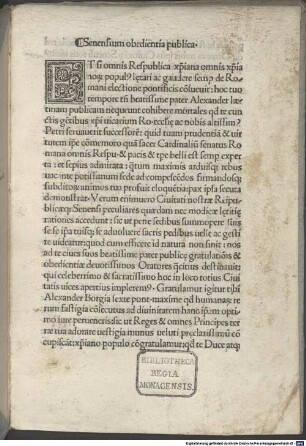 Senensium obedientia publica.
ET si omnis Respublica xp̃iana omnis xp̃ia
noꝝ popul9 lętari ac gaudere semp de Ro
mani electione pontificis cõsueuit: hoc tuo
tempore tñ beatissime pater Alexander lę
titiam publicam nequeunt cohibere mortales qđ te cun
ctis gẽtibus xp̃i uicarium Ro.ecclesię ac nobis altissim9
Petri seruauit successorẽ: quod tuam prudentiã & uir
tutem ip̃e cõmemoro quã sacer Cardinaliũ senatus Ro
mana omnis Respu. & pacis & tpe belli est semp exper
ta: et sępius admirata: q̃tum maximis arduisq; rebus
uacante potissimum sede ad compescẽdos firmandosq;
subditoꝝ animos tua profuit eloquẽtia: pax ip̃a secuta
demonstrat. Verum enimuero Ciuitati nostrę Reipu
blicęq; Senensi peculiares quędam nec modicę lętitię
rationes accedunt: sic ut pene sedibus summopere suis
se se ip̃a tuisq; se aduoluere sacris pedibus uelle ac gesti
re uideatur: quod cum efficere id natura non sinit: nos
ad te ciues suos beatissime pater publicę gratulatiõnis &
obedientię deuotissimos Oratores q̃cimus destinauit:
qui celeberrimo & sacratissimo hoc in loco totius Ciui
tatis uices apertius implerem9. Gratulamur igitur tibi
Alexander Borgia sexte pont.maxime qđ humanaꝝ re
rum fastigia cõsecutus ad diuinitatem hanc ip̃am opti
mo iure perueneris: sic ut Reges & omnes Principes ter
rę tua adorare uestigia munus ueluti pręclarissimũ cõ
cupiscãt: xp̃iano populo cõgratulamur: qđ te Duce atq;
BIBLIOTHECA
REGIA
MONACENSIS.